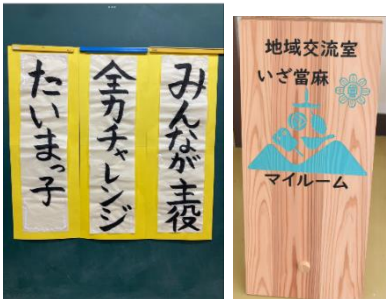 みんなが主役
全力チャレンジ
たいまっ子
地域交流室
いざ當麻
マイルーム